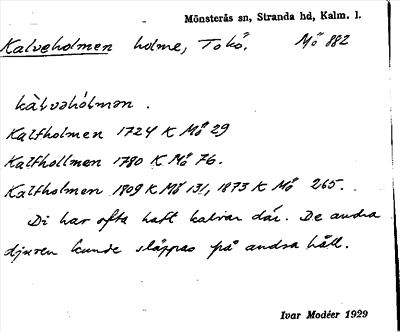 Mönsterås sn, Stranda hd, Kalm. l.
Kalveholmen holme, Tokö. Mö 882
kàlvəhólmən.
Kalfholmen 1724 K Mö 29
Kalfhollmen 1780 K Mö 76.
Kalfholmen 1809 K Mö 131, 1873 K Mö 265.
Di har ofta haft kalvar där. De andra
djuren kunde släppas på andra håll.
Ivar Modéer 1929